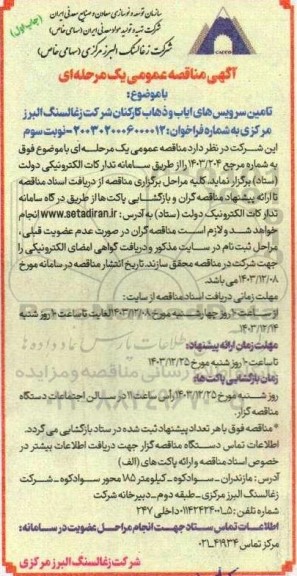 سازمان توسعه و نوسازی معادن و صنایع معدنی ایران
شرکت تهیه و تولید مواد معدنی ایران (سهامی خاص)
شرکت زغالسنگ البرز مرکزی (سهامی خاص)
(چاپ اول)
آگهی مناقصه عمومی یک مرحله‌ای
با موضوع:
تامین سرویس‌های ایاب و ذهاب کارکنان شرکت زغالسنگ البرز
مرکزی به شماره فراخوان: ۲۰۰۳۰۲۰۰۰۶۰۰۰۰۱۲-نوبت سوم
این شرکت در نظر دارد مناقصه عمومی یک مرحله‌ای با موضوع فوق
به شماره مرجع ۱۴۰۳/۲۰۴ را از طریق سامانه تدارکات الکترونیکی دولت
(ستاد) برگزار نماید. کلیه مراحل برگزاری مناقصه از دریافت اسناد مناقصه
تا ارائه پیشنهاد مناقصه گران و بازگشایی پاکت‌ها از طریق درگاه سامانه
تدارکات الکترونیک دولت (ستاد) به آدرس: www.setadiran.ir انجام
خواهد شد و لازم است مناقصه گران در صورت عدم عضویت قبلی،
مراحل ثبت نام در سایت مذکور و دریافت گواهی امضای الکترونیکی را
جهت شرکت در مناقصه محقق سازند. تاریخ انتشار مناقصه در سامانه مورخ
۱۴۰۳/۱۲/۰۸ می باشد.
مهلت زمانی دریافت اسناد مناقصه از سایت:
از ساعت ۱۰ روز چهارشنبه مورخ ۱۴۰۳/۱۲/۰۸ لغایت تا ساعت ۱۰ روز شنبه
۱۴۰۳/۱۲/۱۴
مهلت زمان ارائه پیشنهاد:
تا ساعت ۱۰ روز شنبه مورخ ۱۴۰۳/۱۲/۲۵
زمان بازگشایی پاکت‌ها:
روز شنبه مورخ ۱۴۰۳/۱۲/۲۵ رأس ساعت ۱۱ در سالن اجتماعات دستگاه
مناقصه گزار.
*مناقصه فوق با هر تعداد پیشنهاد ثبت شده در ستاد بازگشایی می گردد.
اطلاعات تماس دستگاه مناقصه گزار جهت دریافت اطلاعات بیشتر در
خصوص اسناد مناقصه و ارائه پاکت‌های (الف)
آدرس: مازندران - سوادکوه - کیلومتر ۱۸۵ محور سوادکوه - شرکت
زغالسنگ البرز مرکزی - طبقه دوم - دبیرخانه شرکت
شماره تلفن: ۵-۰۱۱۴۲۴۲۴۰۰۱ داخلی ۲۴۷
اطلاعات تماس ستاد جهت انجام مراحل عضویت در سامانه:
مرکز تماس ۴۱۹۳۴-۰۲۱
شرکت زغالسنگ البرز مرکزی